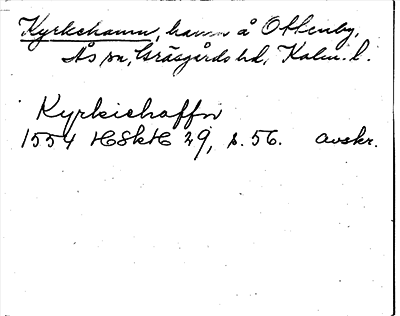 Kyrkehamn, hamn å Ottenby,
Ås sn, Gräsgårds hd, Kalm. l.
Kyrkiehaffn
1554 HSkH 29, s. 56. avskr.